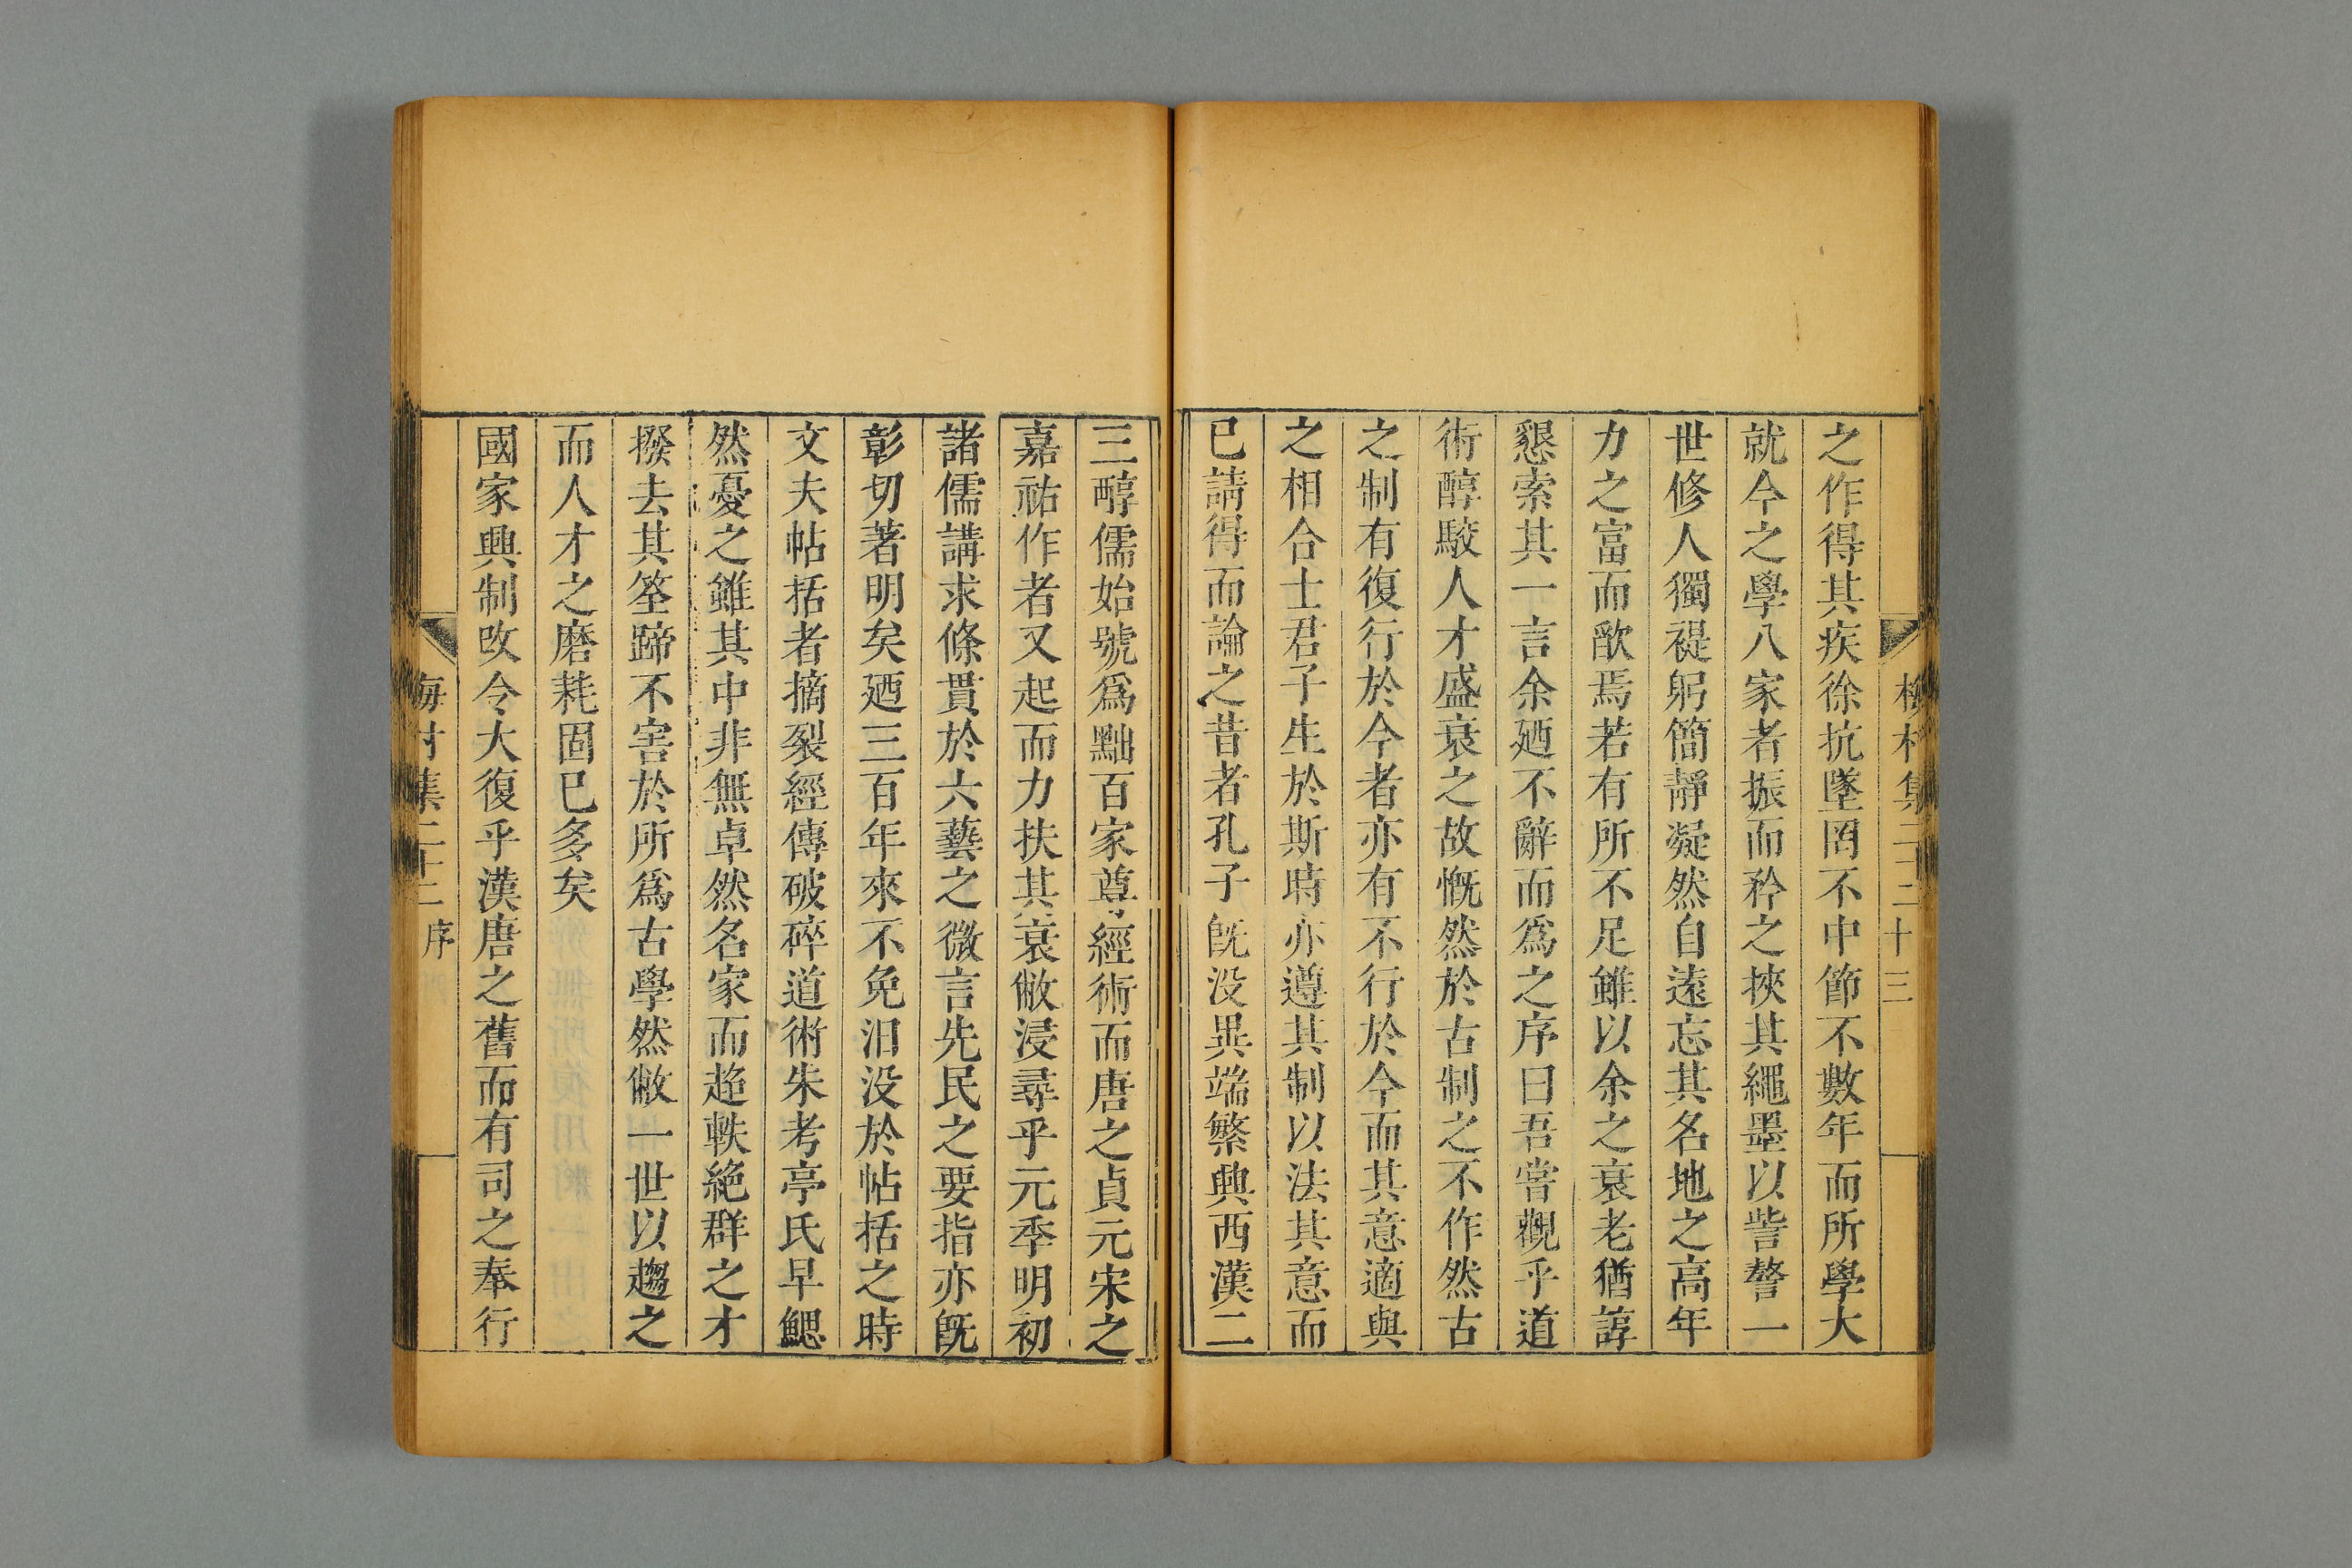 之作得其疾徐抗墜罔不中節不數年而所學大
就今之學八家者振而矜之挾其繩墨以訾謷一
世修人獨禔躬簡靜凝然自遠忘其名地之高年
力之富而歉焉若有所不足雖以余之衰老猶諄
懇索其一言余廼不辭而爲之序曰吾嘗觀乎道
術醇駮人才盛衰之故慨然於古制之不作然古
之制有復行於今者亦有不行於今而其意適與
之相合士君子生於斯時亦遵其制以法其意而
已請得而論之昔者孔子旣没異端繁興西漢二
三醇儒始號爲黜百家尊經術而唐之貞元宋之
嘉祐作者又起而力扶其衰敝浸尋乎元季明初
諸儒講求條貫於六藝之微言先民之要指亦旣
彰切著明矣廼三百年來不免汨没於帖括之時
文夫帖括者摘裂經傳破碎道術朱考亭氏早鰓
然憂之雖其中非無卓然名家而趋軼絶群之才
撥去其筌蹄不害於所爲古學然敝一世以趨之
而人才之磨耗固已多矣
國家興制改令大復乎漢唐之舊而有司之奉行
集二十二 序